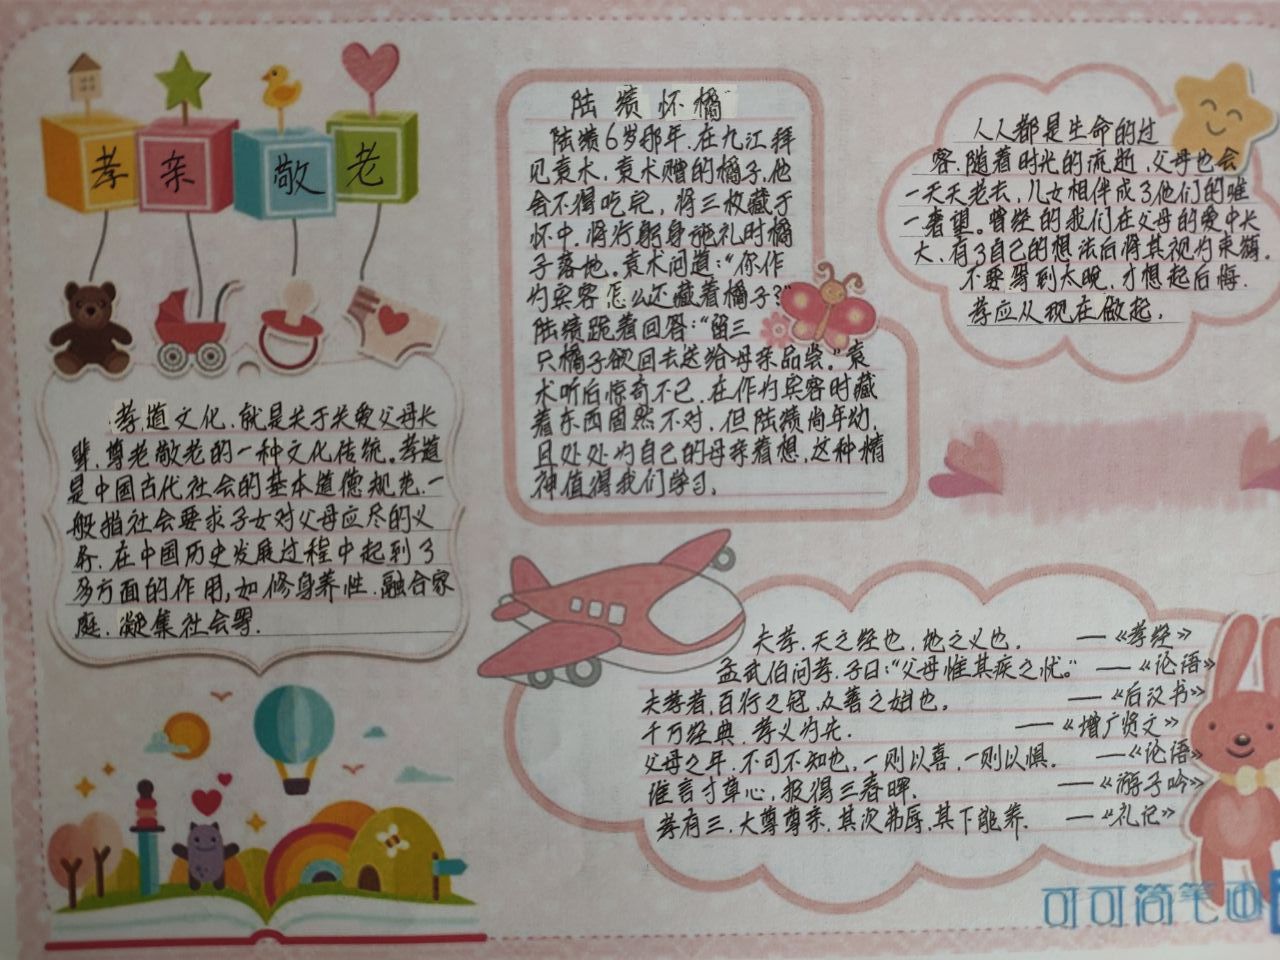 孝亲敬老
孝道文化，就是关于关爱父母长
辈、尊老敬老的一种文化传统。孝道
是中国古代社会的基本道德规范，一
般指社会要求子女对父母应尽的义
务，在中国历史发展过程中起到了
多方面的作用，如修身养性、融合家
庭、凝集社会等。
陆绩怀橘
陆绩6岁那年，在九江拜
见袁术，袁术赠的橘子，他
舍不得吃完，将三枚藏于
怀中，将行躬身施礼时橘
子落地。袁术问道：“你作
为宾客怎么还藏着橘子？”
陆绩跪着回答：“留三
只橘子欲回去送给母亲品尝。”袁
术听后惊奇不已，在作为宾客时藏
着东西固然不对，但陆绩尚年幼，
且处处为自己的母亲着想，这种精
神值得我们学习。
人人都是生命的过
客，随着时光的流逝，父母也会
一天天老去，儿女相伴成了他们的唯
一奢望。曾经的我们在父母的爱中长
大，有了自己的想法后将其视为束缚。
不要等到太晚，才想起后悔，
孝应从现在做起。
夫孝，天之经也，地之义也。 —《孝经》
孟武伯问孝，子曰：“父母惟其疾之忧。” —《论语》
夫孝者，百行之冠，众善之始也。 —《后汉书》
千万经典，孝义为先。 —《增广贤文》
父母之年，不可不知也，一则以喜，一则以惧。 —《论语》
谁言寸草心，报得三春晖。 —《游子吟》
孝有三，大尊尊亲，其次弗辱，其下能养。 —《礼记》
可可简笔画